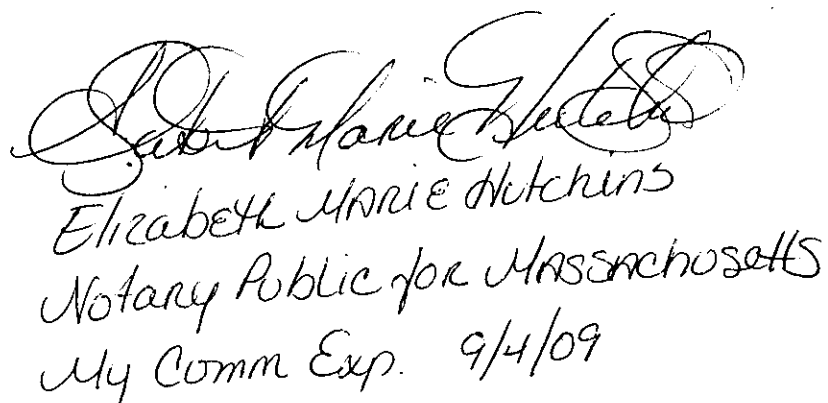 Elizabeth Marie Hutchins
Elizabeth Marie Hutchins
Notary Public for Massachusetts
My Comm Exp. 9/4/09